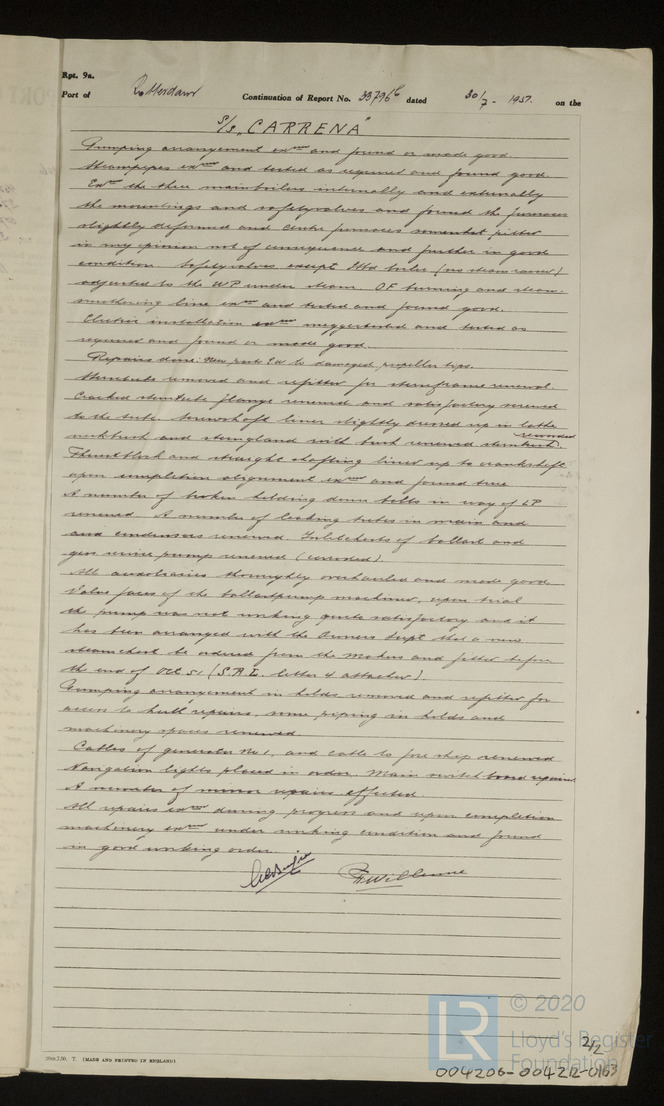 Rpt. 9a.
Port of Rotterdam Continuation of Report No. 33796 dated 30/7 - 1951. on the
S/S "CARRENA"
Pumping arrangement exed and found or made good.
Steampipes exed and tested as required and found good.
Exed the three mainboilers internally and externally
the mountings and safetyvalves and found the furnaces
slightly deformed and centre furnaces somewhat pitted
in my opinion not of consequence and further in good
condition. Safetyvalves except boiler (no steam raised)
adjusted to the WP under steam. OF burning and steam-
smothering line exed and tested and found good.
Electric installation exed meggertested and tested as
required and found or made good.
Repairs done: New parts to damaged propeller tips.
Sterntube removed and refitted for sternframe renewal.
Cracked sterntube flange renewed and satisfactory
to the tube. Screwshaft liner slightly dressed up in lathe
neckbush and sterngland with bush renewed sternbush rewooded.
Thrustblock and straight shafting lined up to crankshaft
upon completion alignment exed and found true
A number of broken holding down bolts in way of LP
renewed. A number of leaking tubes in main and
condensers renewed. of ballast and
service pump renewed (corroded).
All auxiliaries thoroughly overhauled and made good
Valve faces of the ballastpump machined, upon trial
the pump was not working quite satisfactory and it
has been arranged with the Owners Supt that a new
steamchest be ordered from the Makers and fitted before
the end of Oct 51 (S.R.E. letter attached).
Pumping arrangement in holds removed and refitted for
access to hull repairs, some piping in holds and
machinery spaces renewed.
Cables of generator No 1, and cable to fore ship renewed
Navigation lights placed in order. Main switchboard repaired
A number of minor repairs effected.
All repairs exed during progress and upon completion
machinery exed under working condition and found
in good working order.
(MADE AND PRINTED IN ENGLAND)
LR © 2020
Lloyd's Register
Foundation
2/2
004206-004212-0163